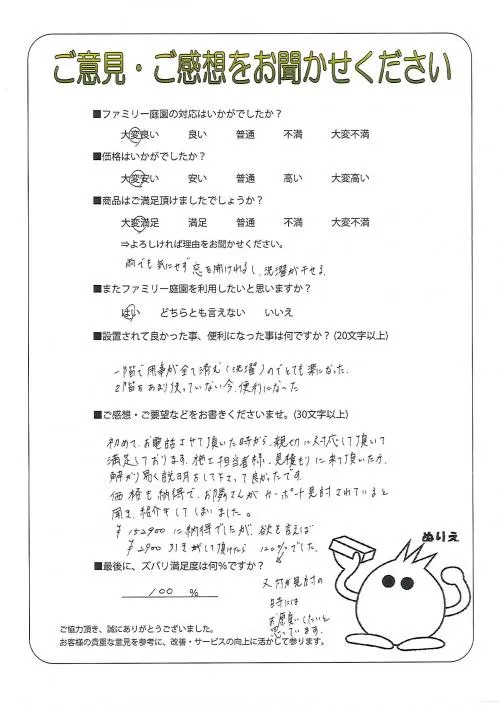 ご意見・ご感想をお聞かせください
■ファミリー庭園の対応はいかがでしたか？
大変良い 良い 普通 不満 大変不満
■価格はいかがでしたか？
大変安い 安い 普通 高い 大変高い
■商品はご満足頂けましたでしょうか？
大変満足 満足 普通 不満 大変不満
⇒よろしければ理由をお聞かせください。
雨でも気にせず窓を開けれるし、洗濯が干せる。
■またファミリー庭園を利用したいと思いますか？
はい どちらとも言えない いいえ
■設置されて良かった事、便利になった事は何ですか？(20文字以上)
一階で用事が全て済む(洗濯)のでとても楽になった。
2階をあまり使っていない今、便利になった
■ご感想・ご要望などをお書きくださいませ。(30文字以上)
初めて、お電話させて頂いた時から、親切に対応して頂いて
満足しております。施工担当者様、見積もりに来て頂いた方、
解かり易く説明をして下さって良かったです。
価格も納得で、お隣さんがカーポート見討されていると
聞き、紹介をしてしまいました。
¥152900に納得でしたが、欲を言えば
¥2900引きがして頂けたら120%でした。
■最後に、ズバリ満足度は何%ですか？
100 %
又何か見討の
時には
お願いしたいと
思っています。
ぬりえ
ご協力頂き、誠にありがとうございました。
お客様の貴重な意見を参考に、改善・サービスの向上に活かして参ります。